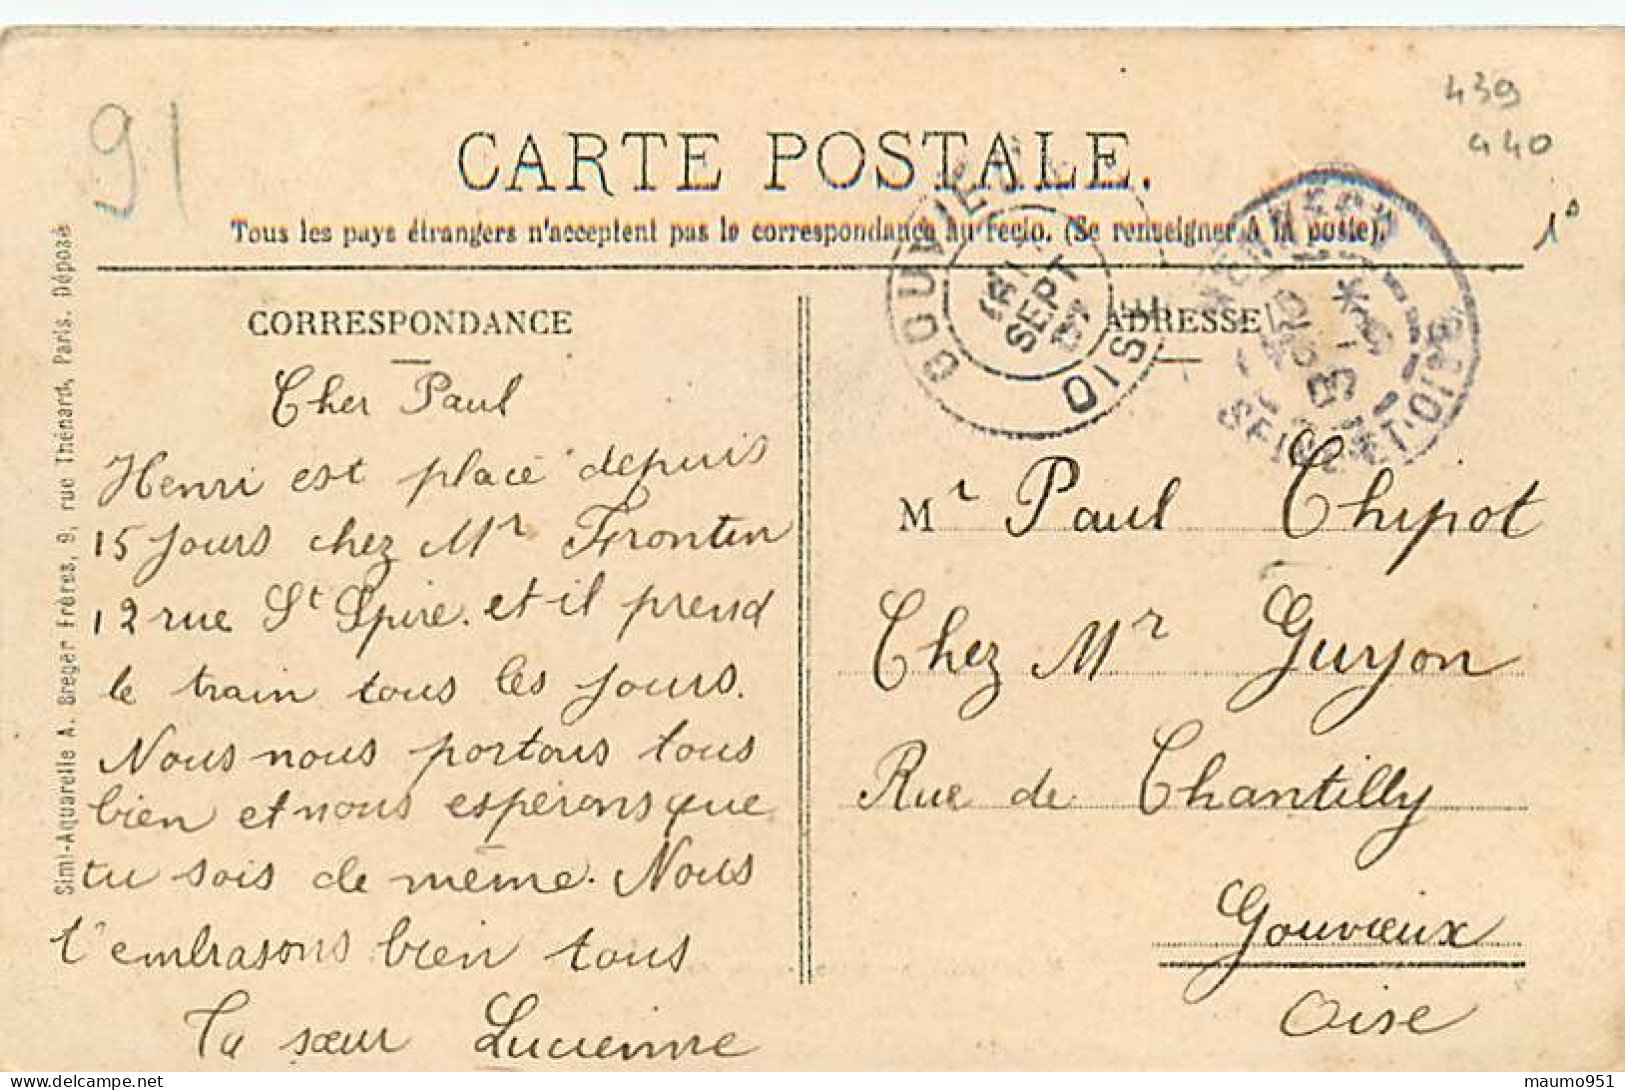 91
439
440
1°
CARTE POSTALE.
Tous les pays étrangers n'acceptent pas la correspondance au recto. (Se renseigner à la poste).
CORRESPONDANCE
Cher Paul
Henri est placé depuis
15 jours chez Mr Frontin
12 rue St Spire. et il prend
le train tous les jours.
Nous nous portons tous
bien et nous espérons que
tu sois de même. Nous
t'embrasons bien tous
Ta sœur Lucienne
ADRESSE
Mr Paul Chipot
Chez Mr Guryon
Rue de Chantilly
Gouvieux
Oise
GOUVIEUX
11
SEPT
07
OISE
SEINE-ET-OISE
Simi-Aquarelle A. Breger Frères, 9, rue Thénard, Paris. Déposé
delcampe.net
maumo951